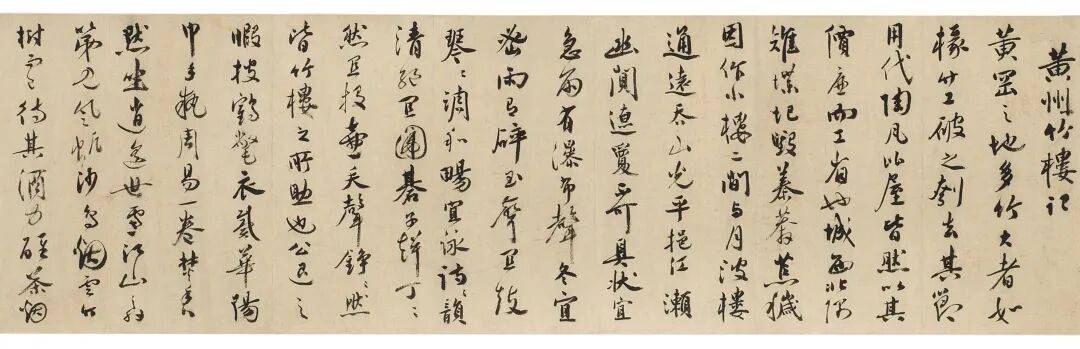 黄州竹樓記
黄岡之地多竹大者如
椽竹工破之刳去其節
用代陶瓦比屋皆然以其
價廉而工省也城西北隅
雉堞圮毀蓁莽荒穢
因作小樓二間与月波樓
通遠吞山光平挹江瀨
幽闃遼夐不可具状宜
急雨有瀑布聲冬宜
密雨有碎玉聲宜鼓
琴〻調和暢宜詠詩〻韻
清絶宜圍棊子聲丁〻
然宜投壺矢聲錚〻然
皆竹樓之所助也公退之
暇披鶴氅衣戴華陽
巾手執周易一卷焚香
默坐消遣世慮江山之外
第見風帆沙鳥烟雲竹
樹而已待其酒力醒茶烟